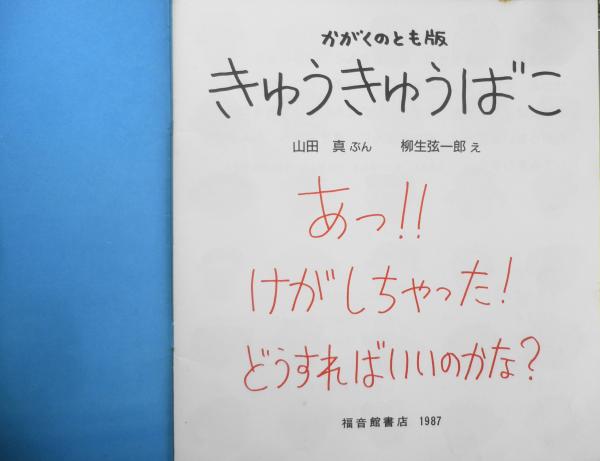 かがくのとも版
きゅうきゅうばこ
山田 真 ぶん 柳生弦一郎 え
あっ!!
けがしちゃった!
どうすればいいのかな?
福音館書店 1987